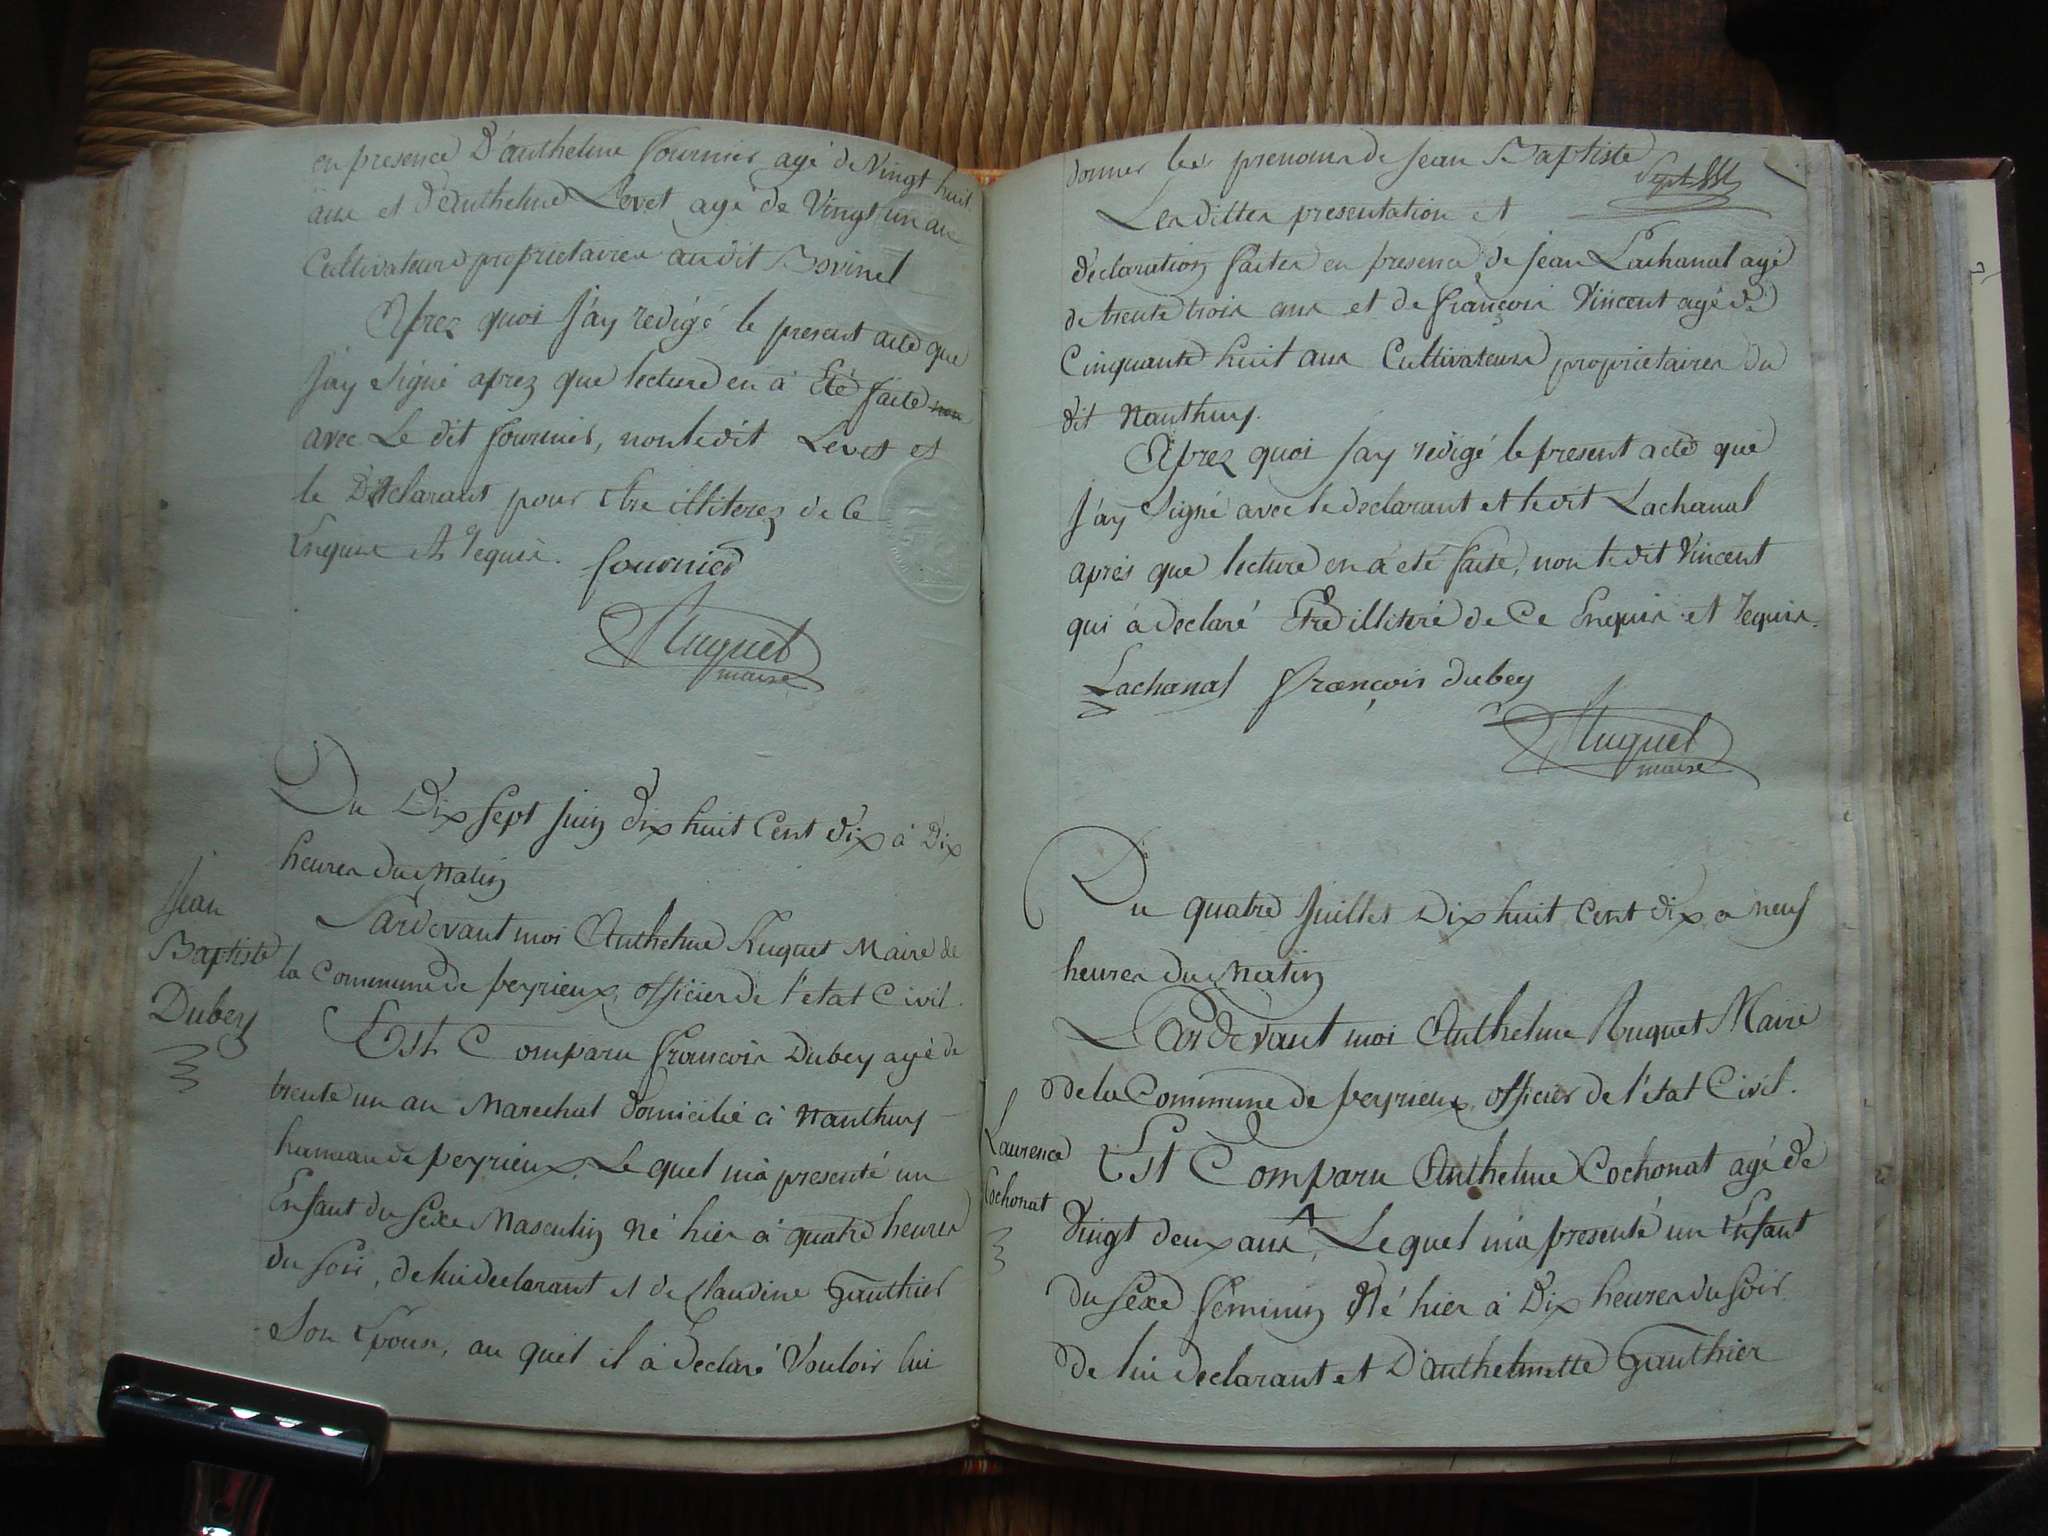 en presence D'anthelme fournier agé de Vingt huit
ans et d'anthelme Levet agé de Vingt un an
Cultivateurs proprietaires au dit Bovinel
Aprez quoi J'ay redigé le present acte que
J'ay signé aprez que lecture en à Eté faite
avec Le dit fournier, non le dit Levet et
le Declarant pour être illiterez de ce
Enquis et requis. fournier
Ruguet
maire
Du Dix sept juin dix huit Cent dix à Dix
heures du Matin
Jean
Baptiste
Dubey
Pardevant moi Anthelme Ruguet Maire de
la Commune de peyrieux, officier de l'etat Civil.
Est Comparu françois Dubey agé de
trente un an Marechal domicilié à Nanthuy
hameau de peyrieux, Le quel m'a presenté un
Enfant du sexe Masculin Né hier à quatre heures
du soir, de lui declarant et de Claudine Gauthier
Son Epouse, au quel il à declaré Vouloir lui
donner les prenoms de Jean Baptiste
Les dittes presentation et
declaration faites en presence de Jean Lachanal agé
de trente trois ans et de françois Vincent agé de
Cinquante huit ans Cultivateurs proprietaires du
dit Nanthuy.
Aprez quoi J'ay redigé le present acte que
J'ay Signé avec le declarant et le dit Lachanal
aprés que lecture en a été faite, non le dit Vincent
qui à declaré Etre illitéré de Ce Enquis et requis.
Lachanal françois dubey
Ruguet
maire
Du quatre Juillet Dix huit Cent dix a neuf
heures du Matin
Pardevant moi Anthelme Ruguet Maire
de la Commune de peyrieux, officier de l'état Civil.
Laurence
Cochonat
Est Comparu Anthelme Cochonat agé de
Vingt deux ans, Le quel m'a presenté un Enfant
du sexe féminin Né hier à Dix heures du soir
de lui declarant et D'anthelmette Gauthier